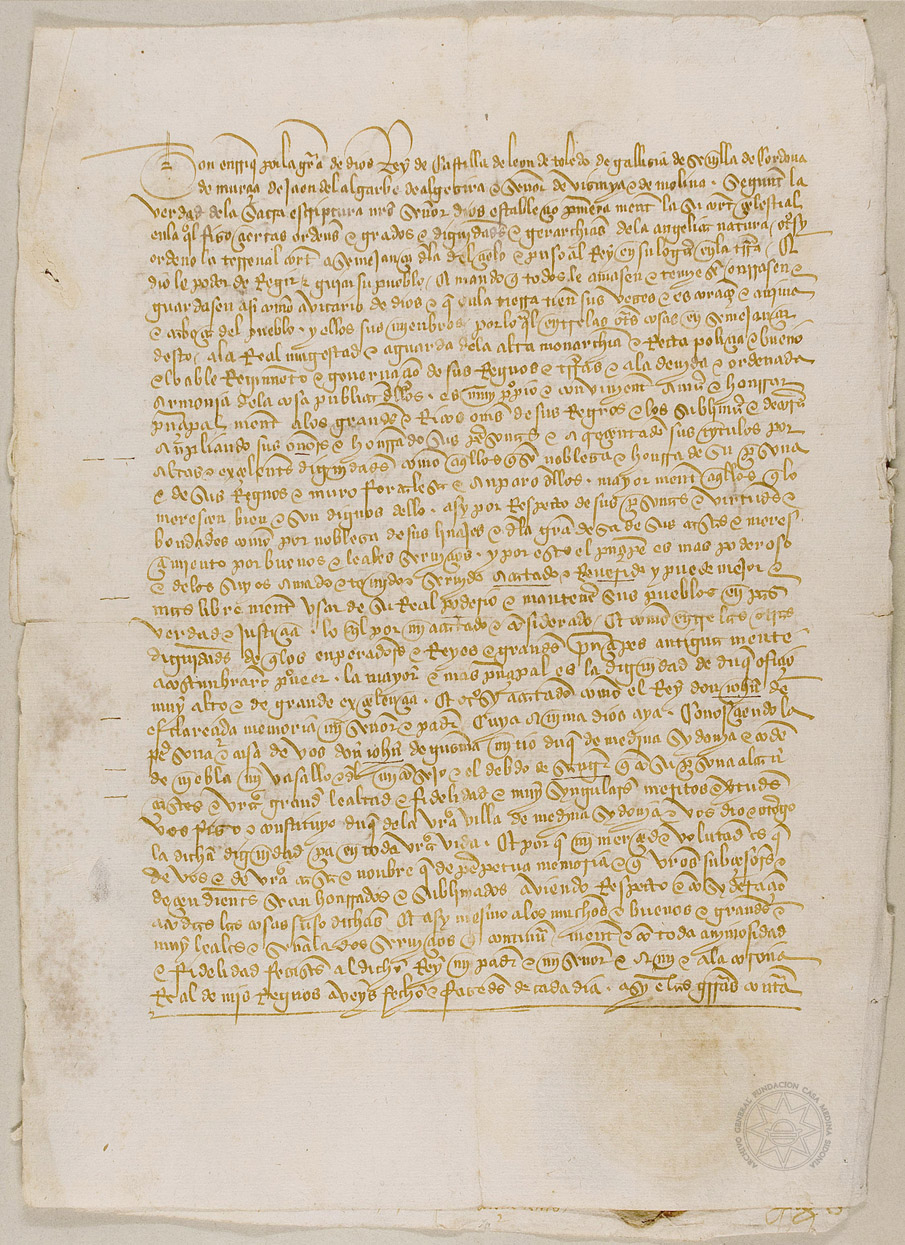 Don enrriq por la grã de dios Rey de Castilla de leon de toledo de gallisia de sevilla de Cordova
de murçia de Jaen del algarbe de algezira e Señor de viscaya e de molina . Segunt la
verdad de la sacra escriptura nrõ Señor dios establecio primera ment la su cort çelestial
en la ql fizo çiertas ordenes e grados e dignidades e gerarchias de la angelica natura / otrosy
ordeno la terrenal cort a semejança dla del çielo e puso al Rey en su logar en la trrã / Et
dio le poder de Regir e guiar su pueblo / Et mando q todos le amasen e temyesen onrrasen e
guardasen asi como a vicario de dios e q en la tierra tien sus veçes e es coraçon e anima
e cabeça del pueblo . y ellos sus miembros por lo ql entre las otrãs cosas en semejança
desto / a la Real magestad e aguarda de la alta monarchia e Recta poliçia e bueno
e loable Regimiento e governaçio de sus Regnos e trrãs e a la devida e ordenada
armonia de la cosa publica dllos . es muy prõpio e convinyent amar e honrrar
prinçipal ment a los grandes e Ricos oms de sus Regnos e los sublimar e decorar
Ampliando sus onores e honrrando sus personas e acreçentando sus titulos por
altas e exçelentes dignidades como aqllos q son nobleza e honrra de su persona
e de sus Regnos e muro fortaleza e Anparo dllos . mayor ment aqllos q lo
meresçen bien e son dignos dello . asy por Respecto de sus personas e virtudes e
bondades como por nobleza de sus linajes e dla grã de sa de sus casas e meres
çimiento por buenos e leales serviçios . y por esto el prinçipe es mas poderoso
e delos suyos amado e temido e servido Acatado e Reverido y puede mejor e
mas libre ment usar de su Real poderio e mantener sus pueblos en paz
verdad e justiçia . lo ql por mi acatado e considerado . Et como entre las otras
dignidades de q los enperadores e Reyes e grandes prinçipes antigua mente
acostunbraron proveer . la mayor e mas prinçipal es la dignidad de duq ofiçio
muy alto e de grande exçelençia . Et otrosy acatado como el Rey don johñ de
esclareçida memoria mi señor e padre Cuya anima dios aya . Conosçiendo la
persona e casa de vos don johñ de gusman mi tio duq de medina sydonia e conde
de niebla mi vasallo e del mi consejo e el debdo de sangre q con su persona alcan
çastes e vrã grand lealtad e fidelidad e muy syngulares meritos e virtudes
vos fizo e constituyo duq de la vrã villa de medina sydonia e vos dio e otorgo
la dicha dignidad para en toda vrã vida . Et por q mi merçed e voluntad es q
de vos e de vrã casa e nonbre q de perpetua memoria e q vrõs subçesores e
deçendientes sean honrrados e sublimados aviendo Respecto e consyderaçio
a todas las cosas suso dichas Et asy mesmo a los muchos e buenos e grandes e
muy leales e señalados serviçios q continua mente e con toda animosidad
e fidelidad fezistes al dicho Rey mi padre e mi señor e a mi e a la corona
Real de mis Regnos aveys fecho e fazedes de cada dia . asy en las guerras contra
ARCHIVO GENERAL FUNDACIÓN CASA MEDINA SIDONIA